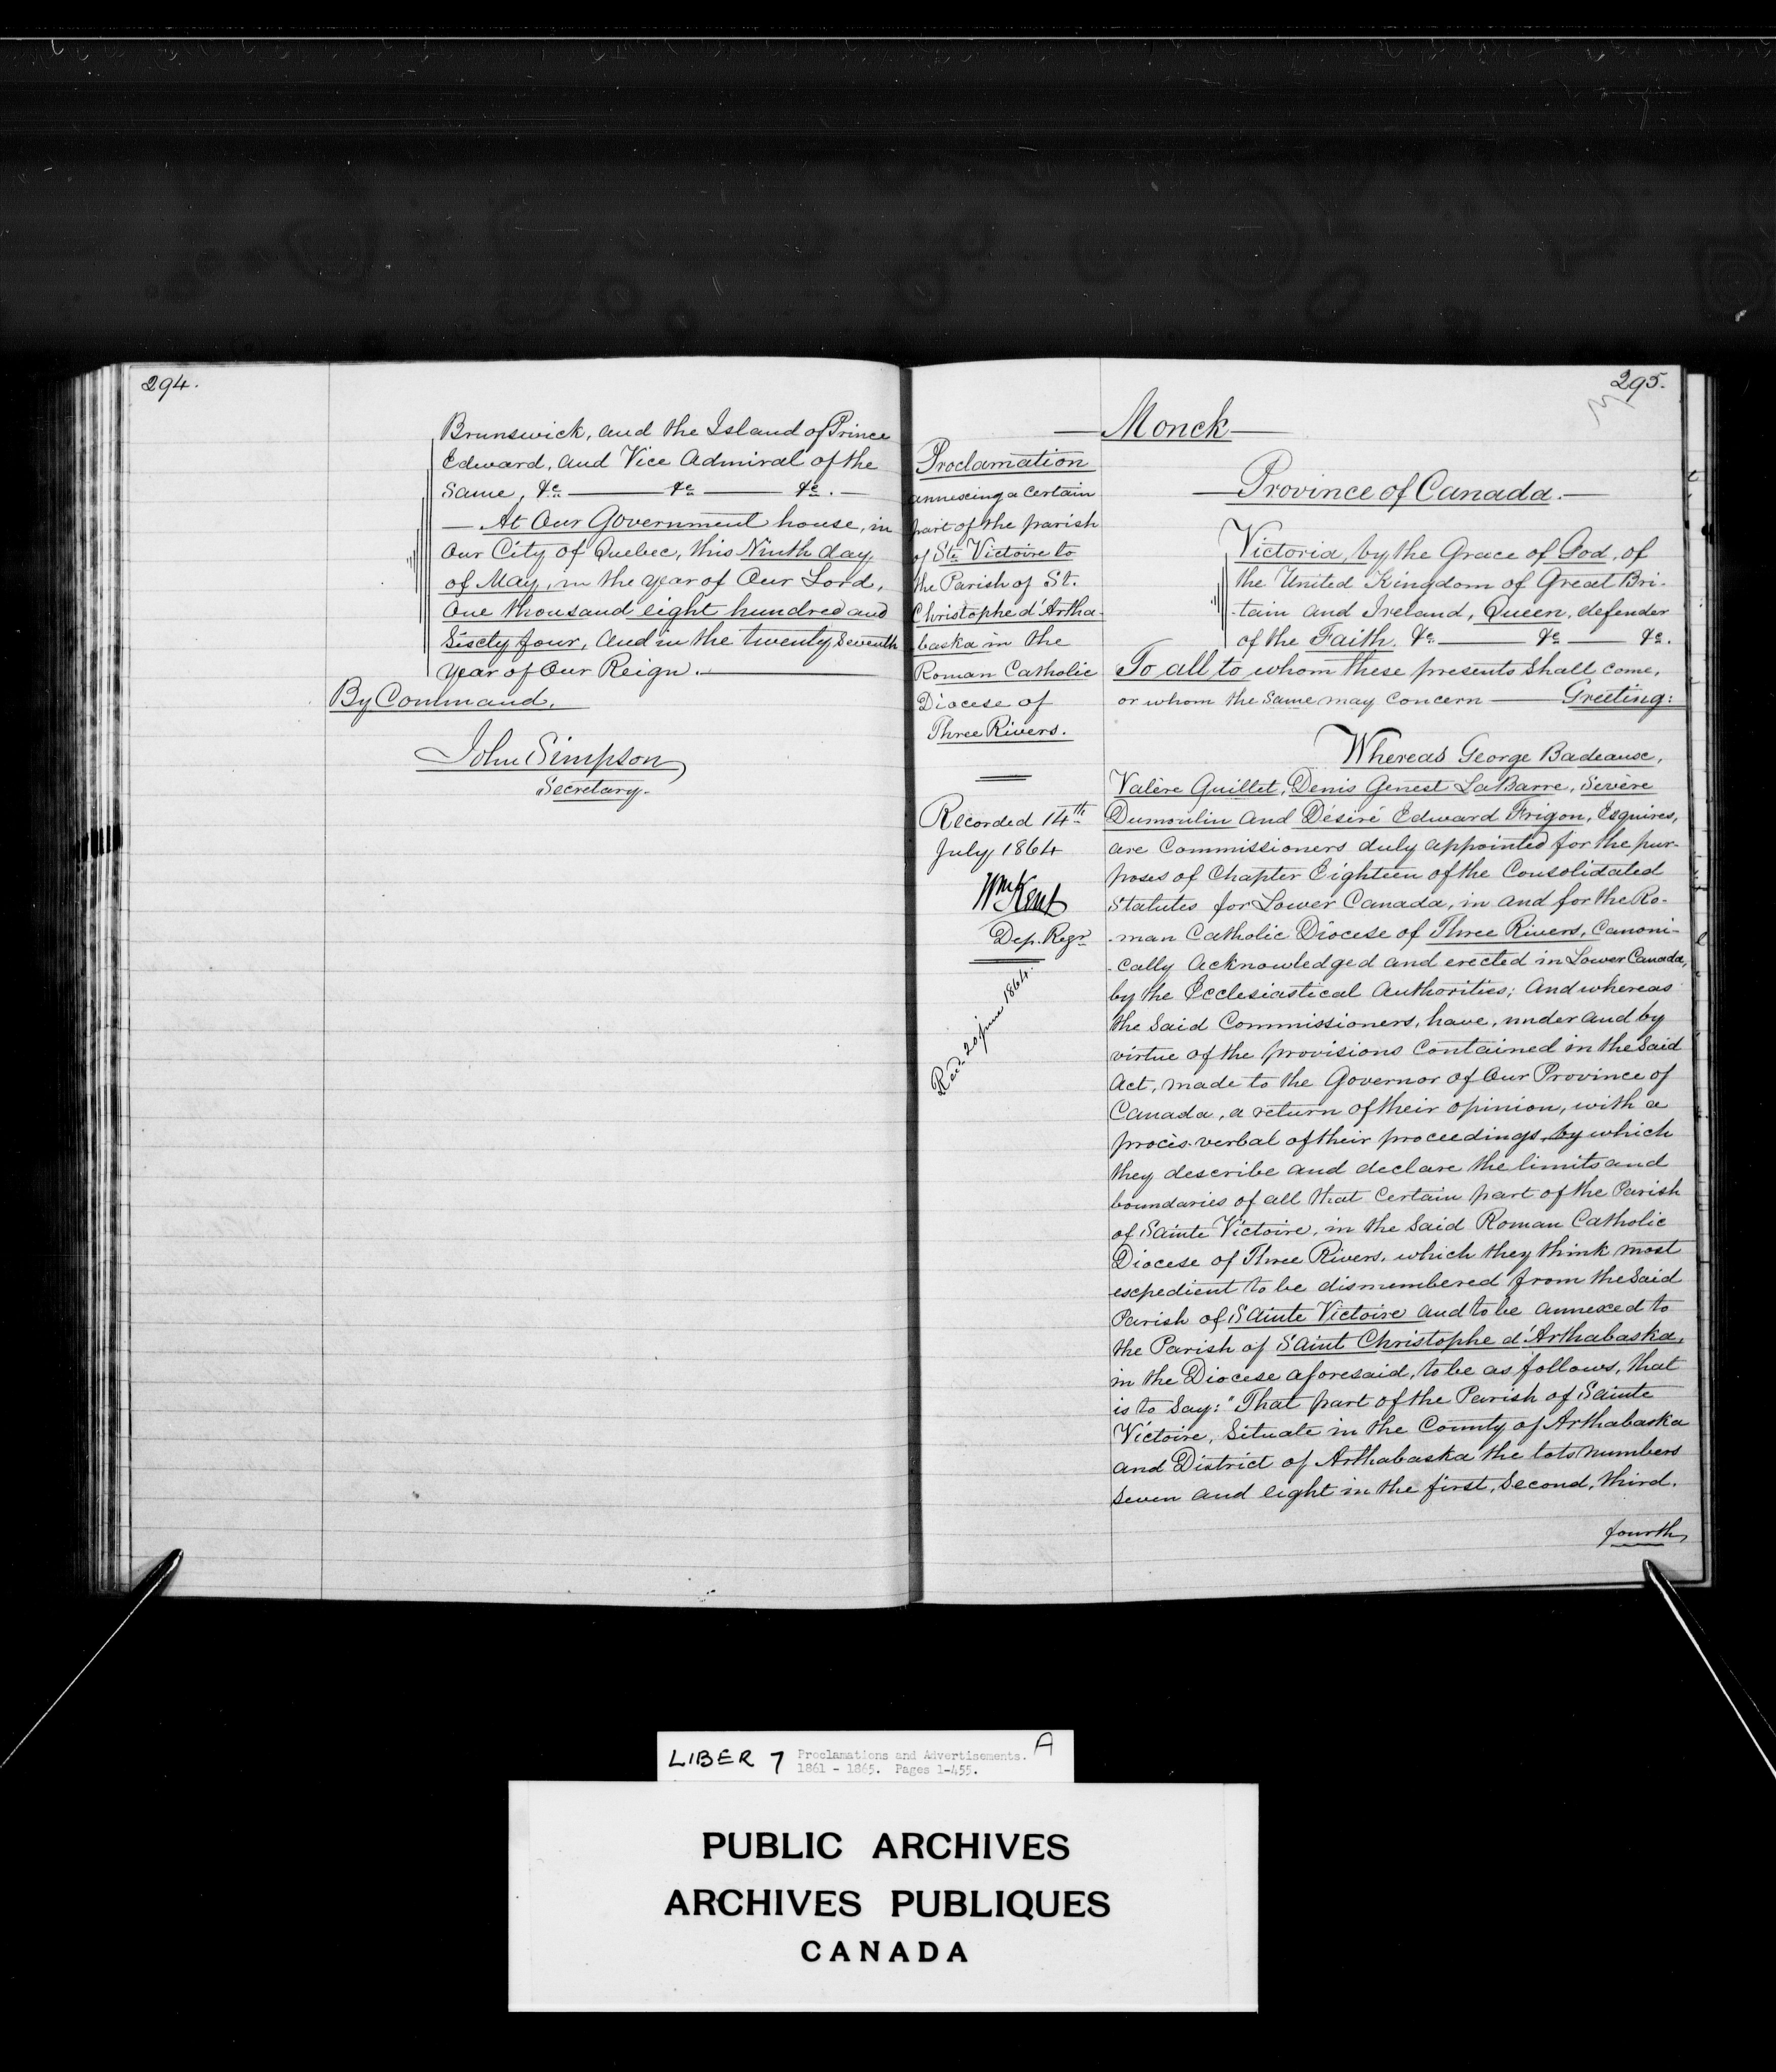 294.
Brunswick, and the Island of Prince
Edward, and Vice Admiral of the
Same, &c — &c — &c. —
— At Our Government house, in
Our City of Quebec, this Ninth day
of May, in the year of Our Lord,
One thousand eight hundred and
Sixty four, and in the twenty Seventh
year of Our Reign. —
By Command,
John Simpson
Secretary.
295.
— Monck —
Proclamation
annexing a Certain
part of the parish
of Ste Victoire to
the Parish of St.
Christophe d'Artha-
baska in the
Roman Catholic
Diocese of
Three Rivers.
Recorded 14th
July 1864
Wm Kent
Dep. Regr
Recd. 20 june 1864.
— Province of Canada. —
Victoria, by the Grace of God, of
the United Kingdom of Great Bri-
-tain and Ireland, Queen, defender
of the Faith. &c — &c — &c.
To all to whom these presents Shall come,
or whom the Same may Concern — Greeting:
Whereas George Badeaux,
Valère Guillet, Denis Genest LaBarre, Sévère
Dumoulin and Désiré Edward Frigon, Esquires,
are Commissioners duly appointed for the pur-
poses of Chapter Eighteen of the Consolidated
Statutes for Lower Canada, in and for the Ro-
-man Catholic Diocese of Three Rivers, Canoni-
-cally Acknowledged and erected in Lower Canada,
by the Ecclesiastical Authorities; And whereas
the Said Commissioners, have, under and by
virtue of the provisions Contained in the Said
Act, made to the Governor of Our Province of
Canada, a return of their opinion, with a
procès-verbal of their proceedings by which
they describe and declare the limits and
boundaries of all that Certain part of the Parish
of Sainte Victoire, in the Said Roman Catholic
Diocese of Three Rivers, which they think most
expedient to be dismembered from the Said
Parish of Sainte Victoire and to be annexed to
the Parish of Saint Christophe d'Arthabaska,
in the Diocese aforesaid, to be as follows, that
is to Say: "That part of the Parish of Sainte
Victoire, Situate in the County of Arthabaska
and District of Arthabaska the lots numbers
Seven and eight in the first, Second, third,
fourth
LIBER 7 Proclamations and Advertisements. A
1861 - 1865. Pages 1-455.
PUBLIC ARCHIVES
ARCHIVES PUBLIQUES
CANADA